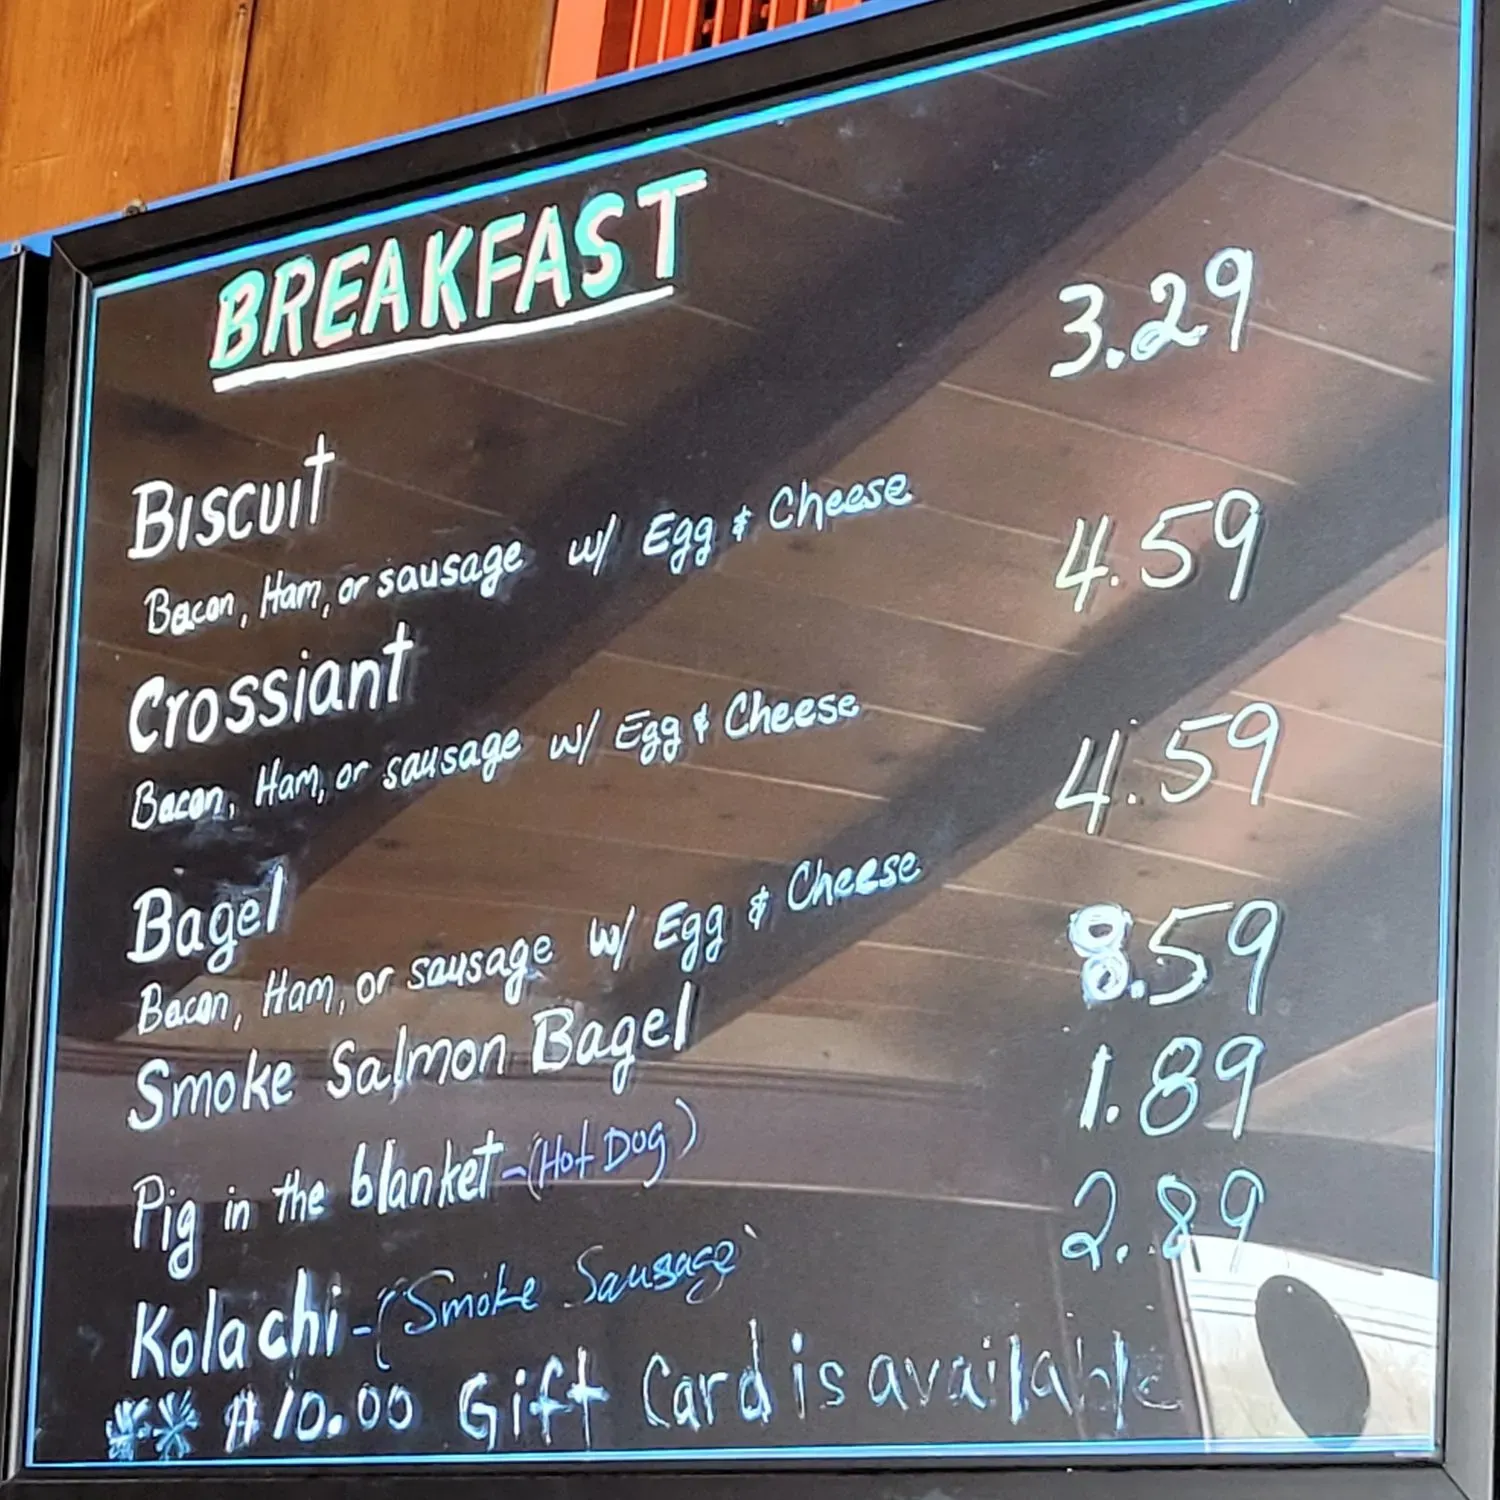 BREAKFAST
Biscuit 3.29
Bacon, Ham, or sausage w/ Egg & Cheese
Crossiant 4.59
Bacon, Ham, or sausage w/ Egg & Cheese
Bagel 4.59
Bacon, Ham, or sausage w/ Egg & Cheese
Smoke Salmon Bagel 8.59
Pig in the blanket-(Hot Dog) 1.89
Kolachi-(Smoke Sausage) 2.89
** $10.00 Gift Card is available